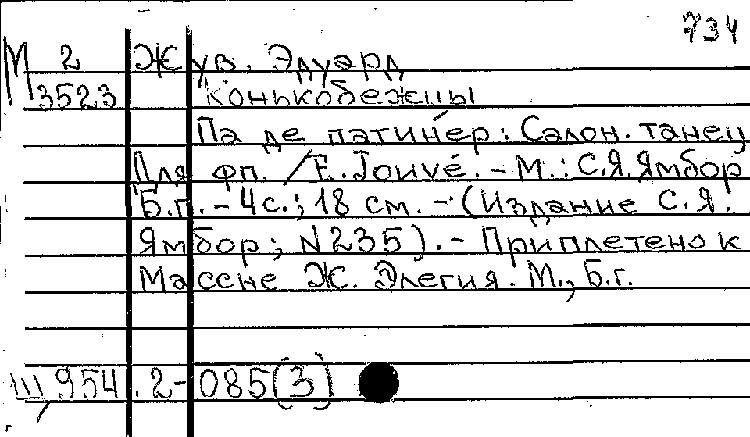 734
М 2 Жув. Эдуард
3523 Конькобежцы
Па де патинéр: Салон. танец
Для фп. / E. Jouvé. - М.: С.Я. Ямбор
Б.г. - 4с.; 18 см. - (Издание С.Я.
Ямбор; N235). - Приплетено к
Массне Ж. Элегия. М., Б.г.
Щ 954.2-085(3)